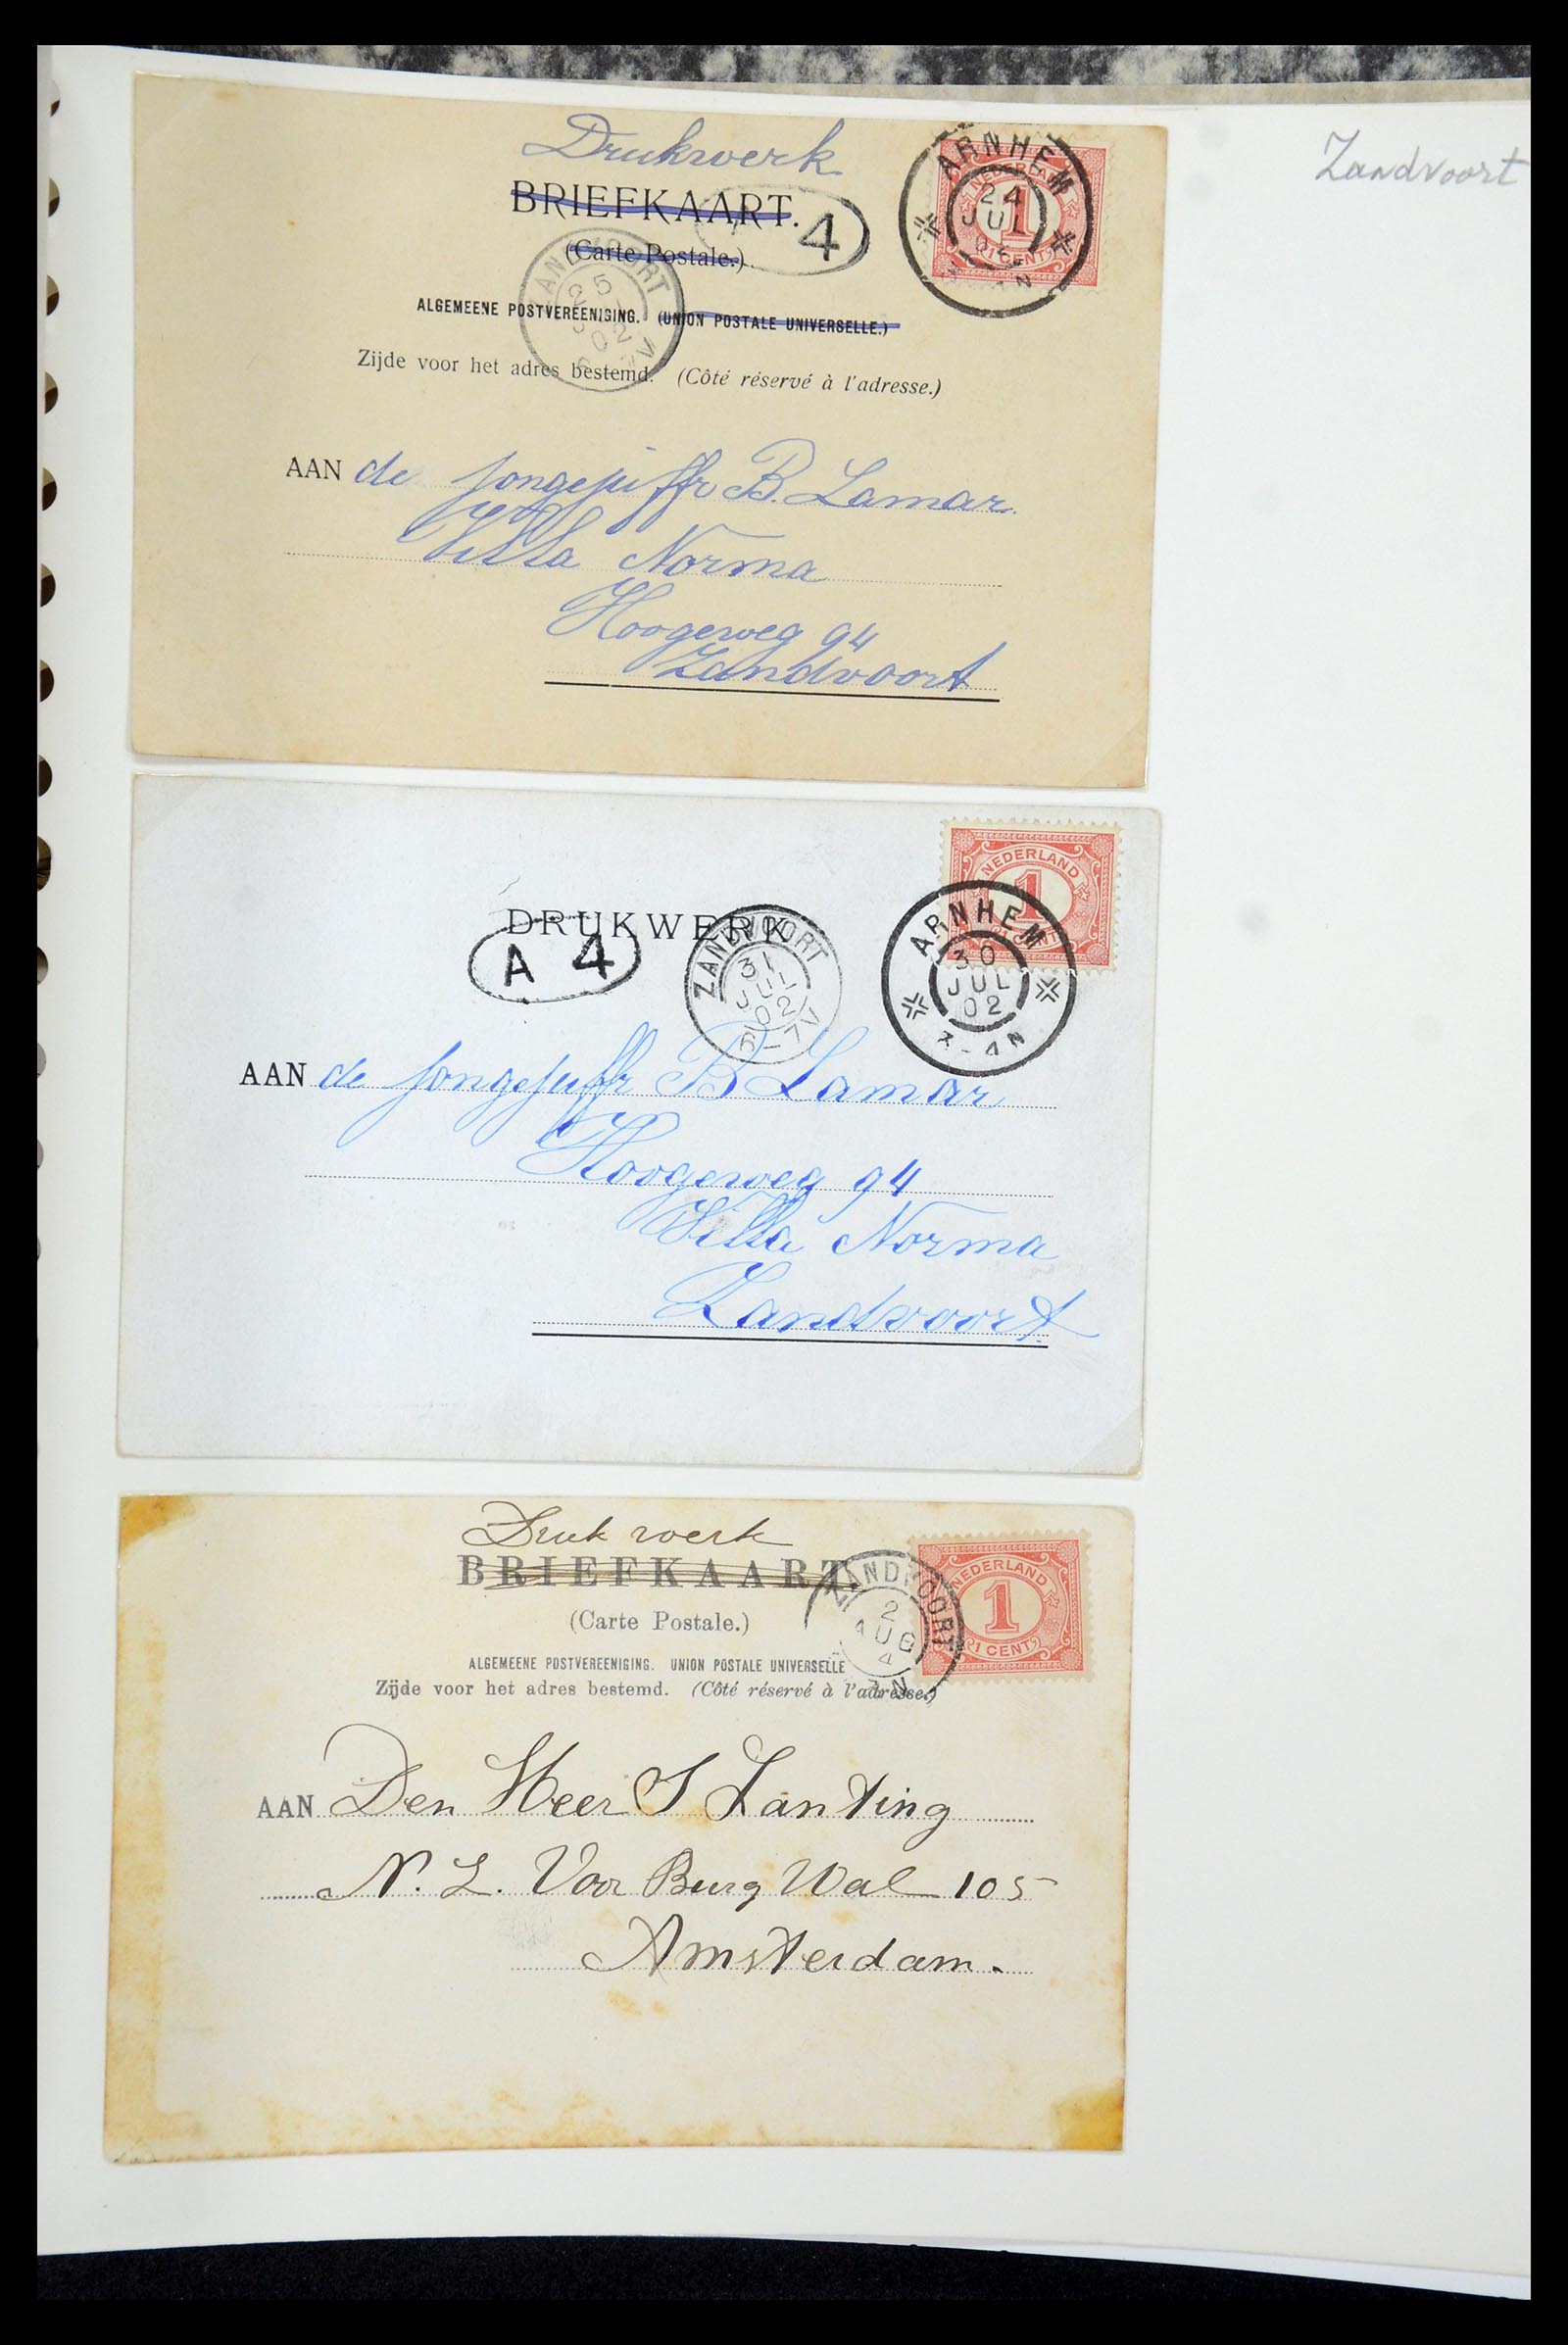 Zandvoort
Drukwerk
BRIEFKAART.
(Carte Postale.)
4
ARNHEM
24
JUL
NEDERLAND
1
1 CENT
ZANDVOORT
25
02
ALGEMEENE POSTVEREENIGING. (UNION POSTALE UNIVERSELLE.)
Zijde voor het adres bestemd. (Côté réservé à l'adresse.)
AAN de Jongejuffr B. Lamar
Villa Norma
Hoogeweg 94
Zandvoort
NEDERLAND
1
1 CENT
DRUKWERK
A 4
ZANDVOORT
31
JUL
02
6-7V
ARNHEM
30
JUL
02
3-4N
AAN de Jongejuffr B Lamar
Hoogeweg 94
Villa Norma
Zandvoort
Druk werk
BRIEFKAART.
(Carte Postale.)
ZANDVOORT
2
AUG
4
N
NEDERLAND
1
1 CENT
ALGEMEENE POSTVEREENIGING. UNION POSTALE UNIVERSELLE
Zijde voor het adres bestemd. (Côté réservé à l'adresse.)
AAN Den Heer S Lanting
N. Z. Voor Burg Wal 105
Amsterdam.